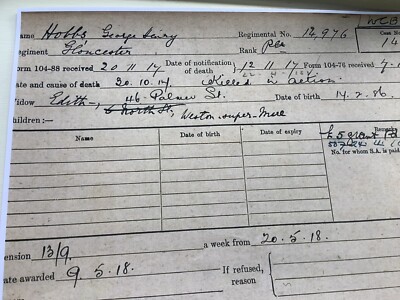 WCB
ame Hobbs George Henry Regimental No. 12,976 Case No.
egiment Gloucester Rank Pte 14
Form 104-88 received 20.11.17 Date of notification of death 12.11.17 Form 104-76 received 7.
ate and cause of death 20.10.17 Killed in action.
idow Edith –, 46. Palmer St. 14.2.86.
6 North St, Weston-super-Mare
hildren:—
Name Date of birth Date of expiry Remarks
£5 grant
No. for whom S.A. is paid
ension 13/9. a week from 20.5.18.
ate awarded 9.5.18. If refused,
reason